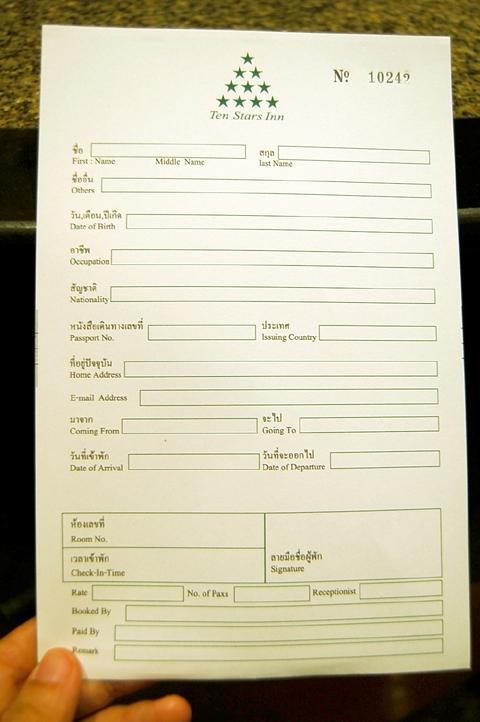 Nº 10242
Ten Stars Inn
ชื่อ สกุล
First : Name Middle Name last Name
ชื่ออื่น
Others
วัน,เดือน,ปีเกิด
Date of Birth
อาชีพ
Occupation
สัญชาติ
Nationality
หนังสือเดินทางเลขที่ ประเทศ
Passport No. Issuing Country
ที่อยู่ปัจจุบัน
Home Address
E-mail Address
มาจาก จะไป
Coming From Going To
วันที่เข้าพัก วันที่จะออกไป
Date of Arrival Date of Departure
ห้องเลขที่
Room No.
เวลาเข้าพัก ลายมือชื่อผู้พัก
Check-In-Time Signature
Rate No. of Paxs Receptionist
Booked By
Paid By
Remark